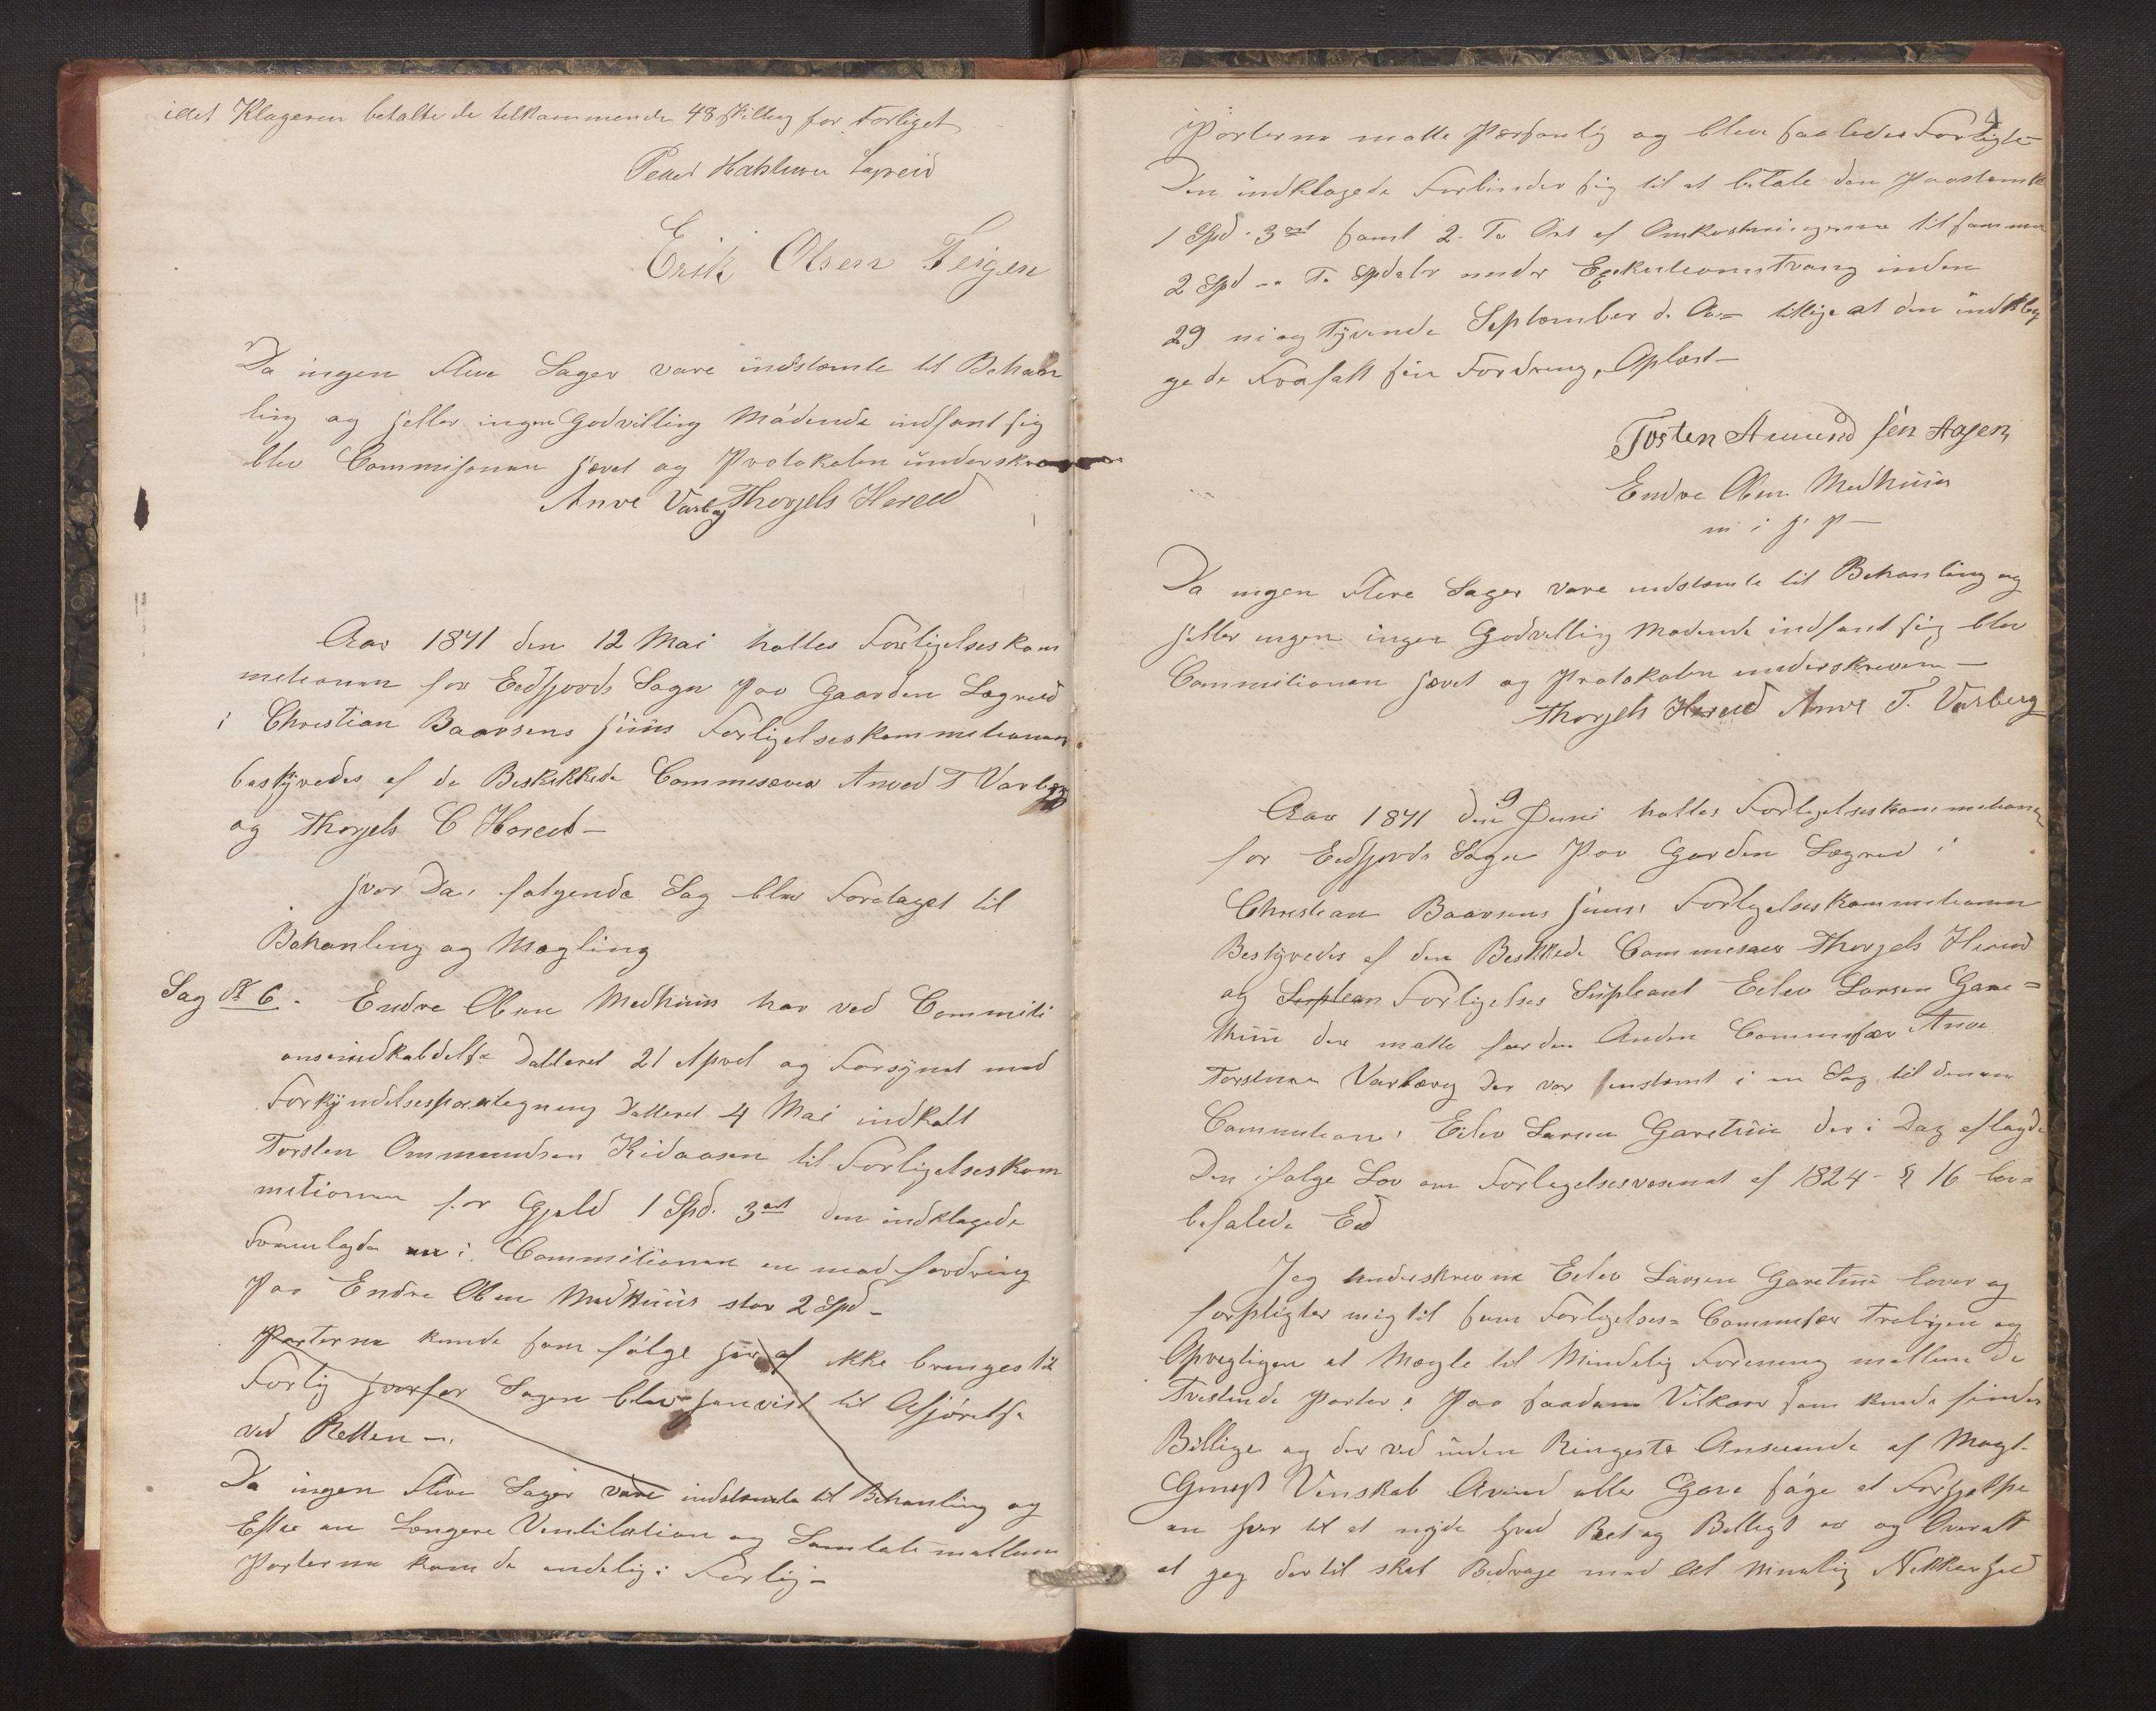 idet Klageren betalte de tilkommende 48 skilling for Forliget
Peder Hakluven Legreid
Erik Olsen Feigen
Da ingen Flere Sager vare indstemte til Behan
ling og heller ingen Godvillig Mødende indfant sig
blev Commisjonen hævet og Protokolen underskreven
Anve Varberg Thorgels Hereid
Aar 1871 den 12 Mai holtes Forligelseskom
metionen for Eidfjords Sogn paa Gaarden Lægreid
i Christian Baarsens Huus Forligelseskommetionen
bestyredes af de Beskikkede Commesærer Anved T Varberg
og Thorgels C Hereid –
hvor Da følgende Sag blev Foretaget til
Behanling og Mægling
Sag No 6. Endre Olsen Medhuus har ved Commiti
onsindkaldelse Datteret 21 April og Forsynet med
Forkyndelsespaategning Datteret 4 Mai indkalt
Torsten Ommundsen Kidaasen til Forligelseskom
metionen for Gjeld 1 Spd. 3 ort den indklagede
Fremlagde i Commitionen en modfordring
paa Endre Olsen Medhuus stor 2 Spd –
Parterne kunde som følge her af ikke bringes til
Forlig hvorfor Sagen blev henvist til Afgjørelse
ved Retten –
Da ingen Flere Sager vare indstemte til Behanling og
Efter en Længere Ventilation og Samtale mellem
Parterne kom de endelig i Forlig –
4
Parterne møtte Personlig og blev saaledes Forligte
Den indklagede Forbinder sig til at betale den Paastemte
1 Spd. 3 ort samt 2 To Ort af Omkostningerne tilsammen
2 Spd – To Spdalr under Exekutionstvang inden
29 niogtyvende September d. Aa – tillige at den indkla
gede Frafalt sin Fordring. Oplæst –
Tosten Amund sen Aasen
Endre Olsen Medhuus
m i h p –
Da ingen Flere Sager vare indstemte til Behanling og
heller ingen ingen Godvillig Mødende indfant sig blev
Commitionen hævet og Protokolen underskreven –
Thorgels Hereid Anve T. Varberg
Aar 1871 den 9 Juni holtes Forligelseskommetionen
for Eidfjords Sogn Paa Garden Lægreid i
Christian Baarsens Huus Forligelseskommetionen
Bestyredes af den Beskikkede Commesær Thorgels Hereid
og Suplean Forligelses Supleant Eilev Larsen Gare=
thun der møtte for den Anden Commesær Anve
Torstensen Varberg der var instemt i en Sag til denne
Commetion. Eilev Larsen Garetun der i Dag aflagde
Den ifølge Lov om Forligelsesvæsenet af 1824 – § 16 lov=
befalede Ed
Jeg Underskrevne Eilev Larsen Garetun lover og
forpligter mig til som Forligelses= Commesær Troligen og
Oprigtigen at Mægle til Mindelig Forening mellem de
Tvistende Parter: Paa saadane Vilkaar som kunde findes
Billige og der ved uden Ringeste Anseende af Magt
Gunst Venskab Avind eller Gave søge at Forhjelpe
en hver til at nyde hvad Ret og Billigt er og Overalt
at jeg dertil skal Bidrage med Al Muelig Nitkerhed